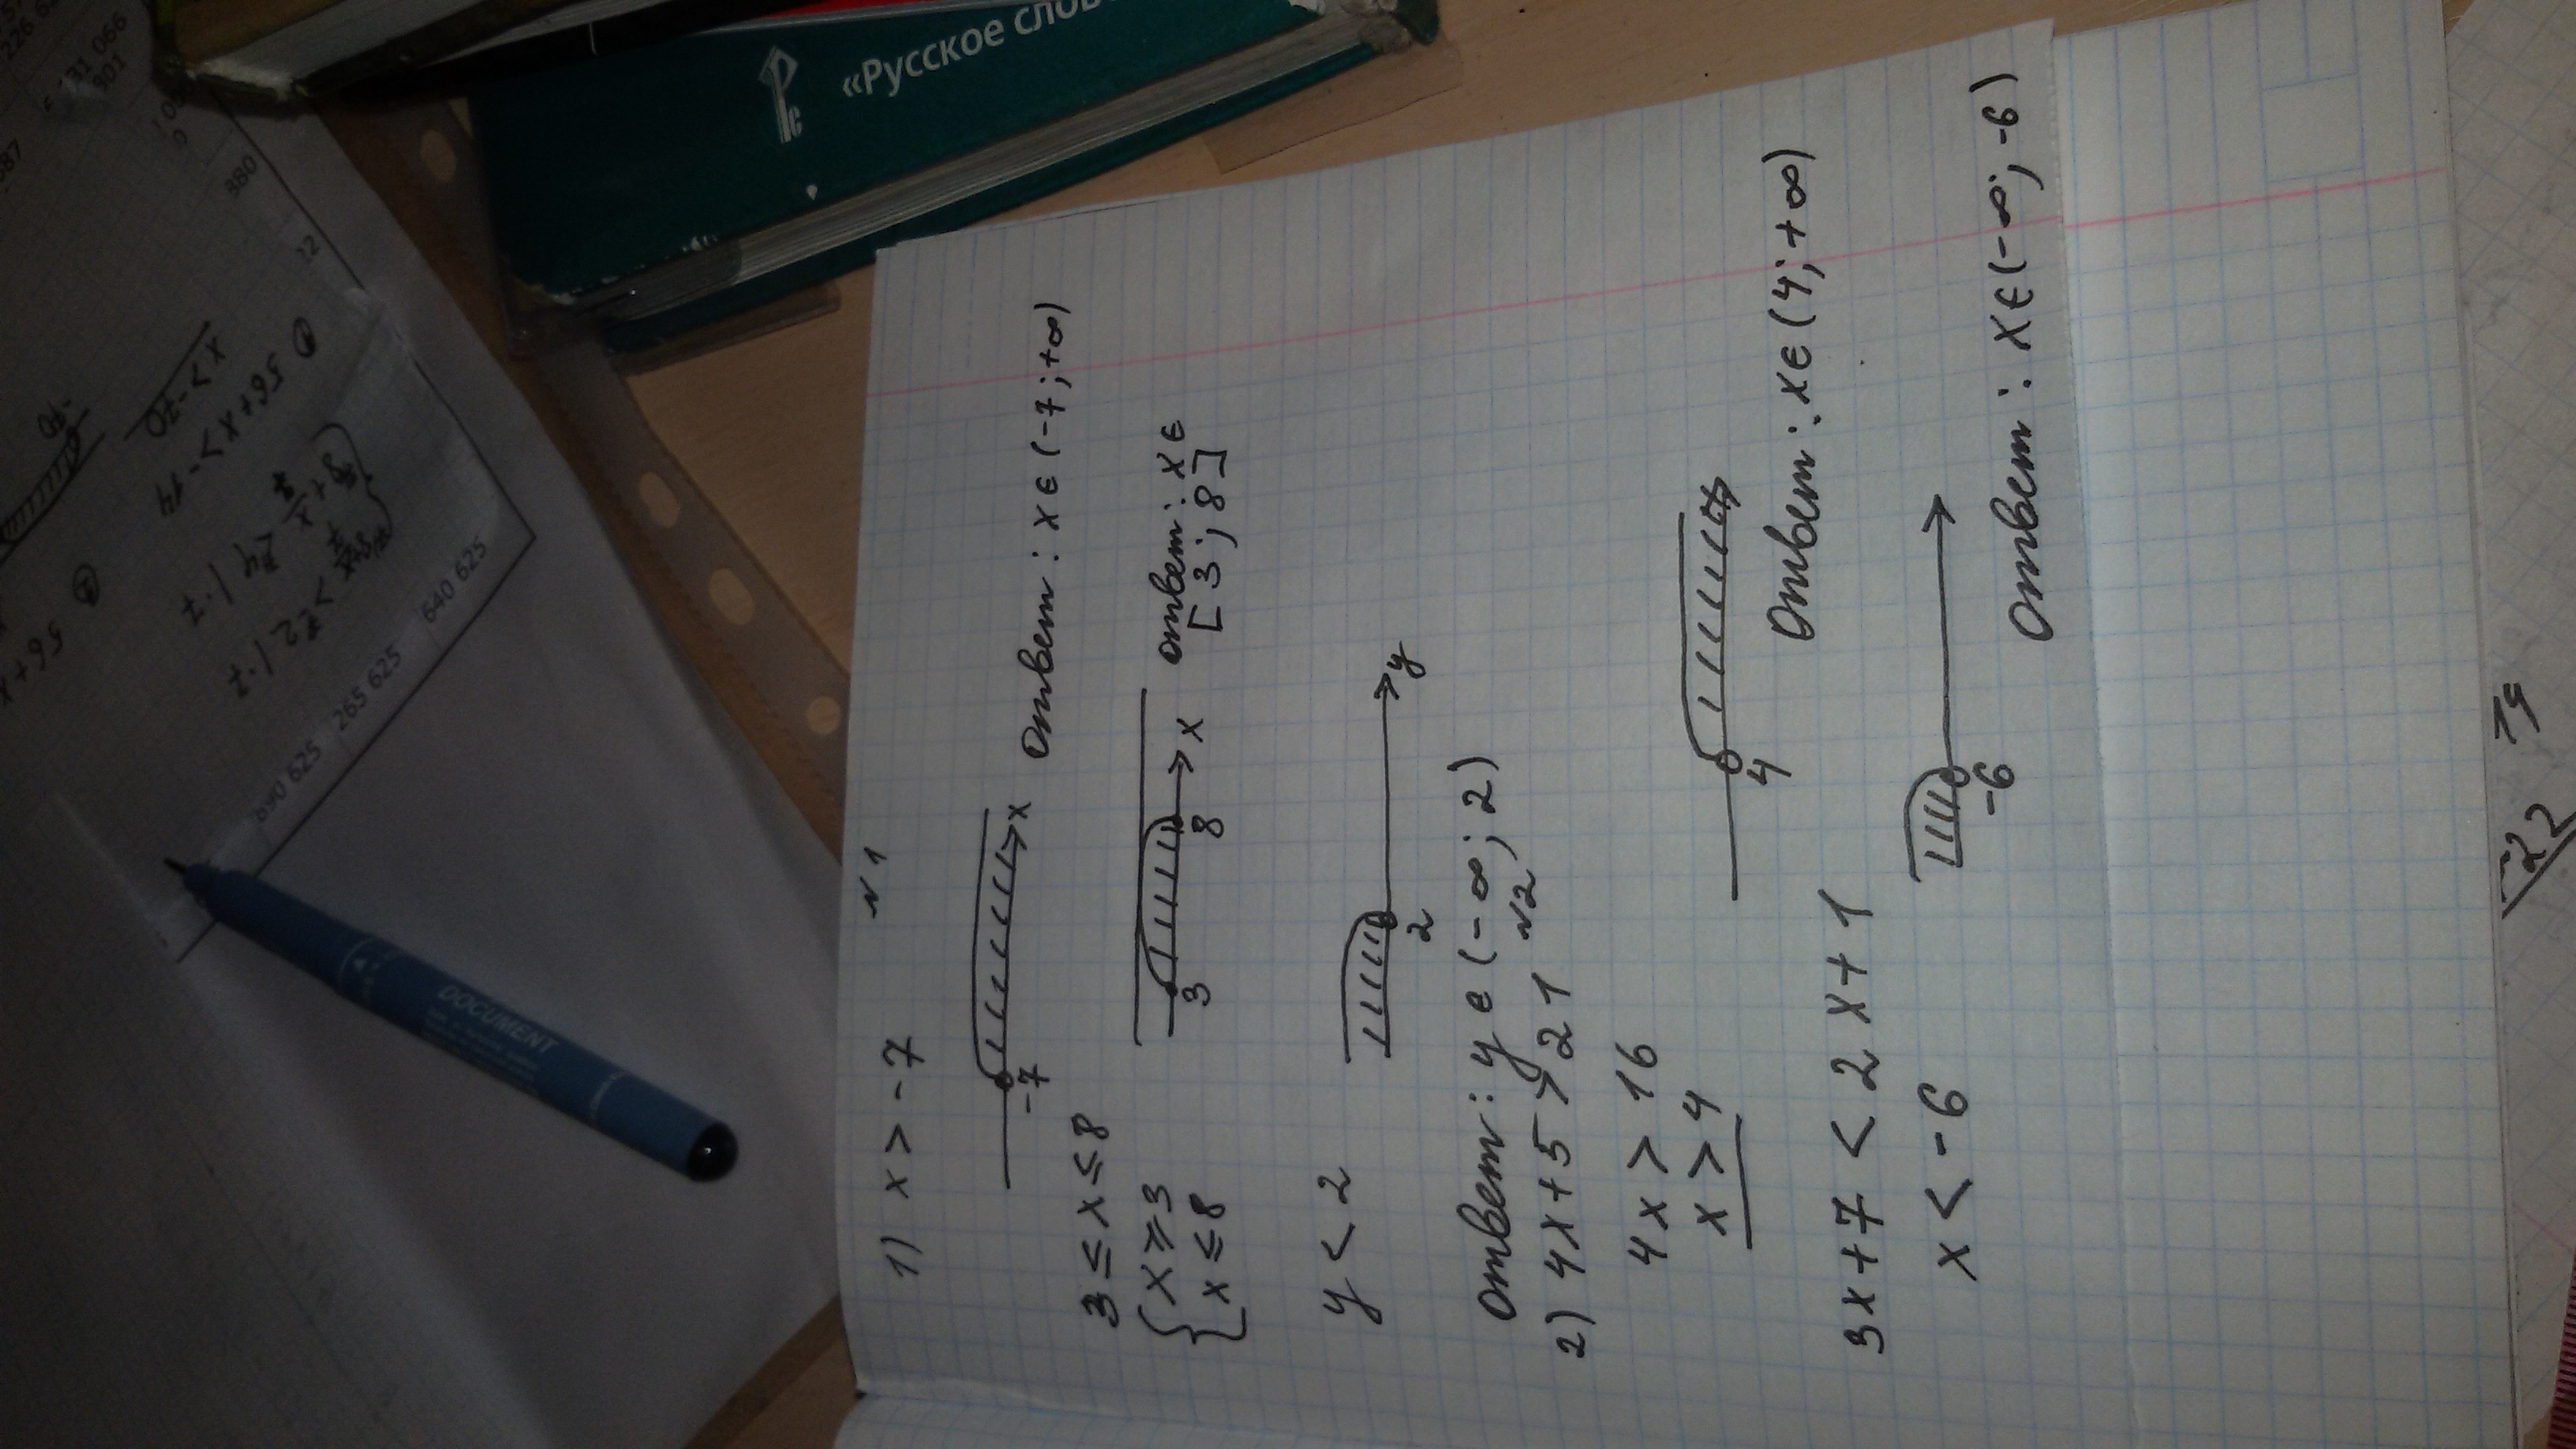 «Русское
Рс
N1
1) x > -7
-7
x
Ответ: x ∈ (-7; +∞)
3 ≤ x ≤ 8
{ x ≥ 3
x ≤ 8
3
8
x
Ответ: x ∈
[3; 8]
y < 2
2
y
Ответ: y ∈ (-∞; 2)
N2
2) 4x + 5 > 21
4x > 16
x > 4
4
Ответ: x ∈ (4; +∞)
3x + 7 < 2x + 1
x < -6
-6
Ответ: x ∈ (-∞; -6)
DOCUMENT
640 625
265 625
890 625
380
x > -70
56 + x > -14